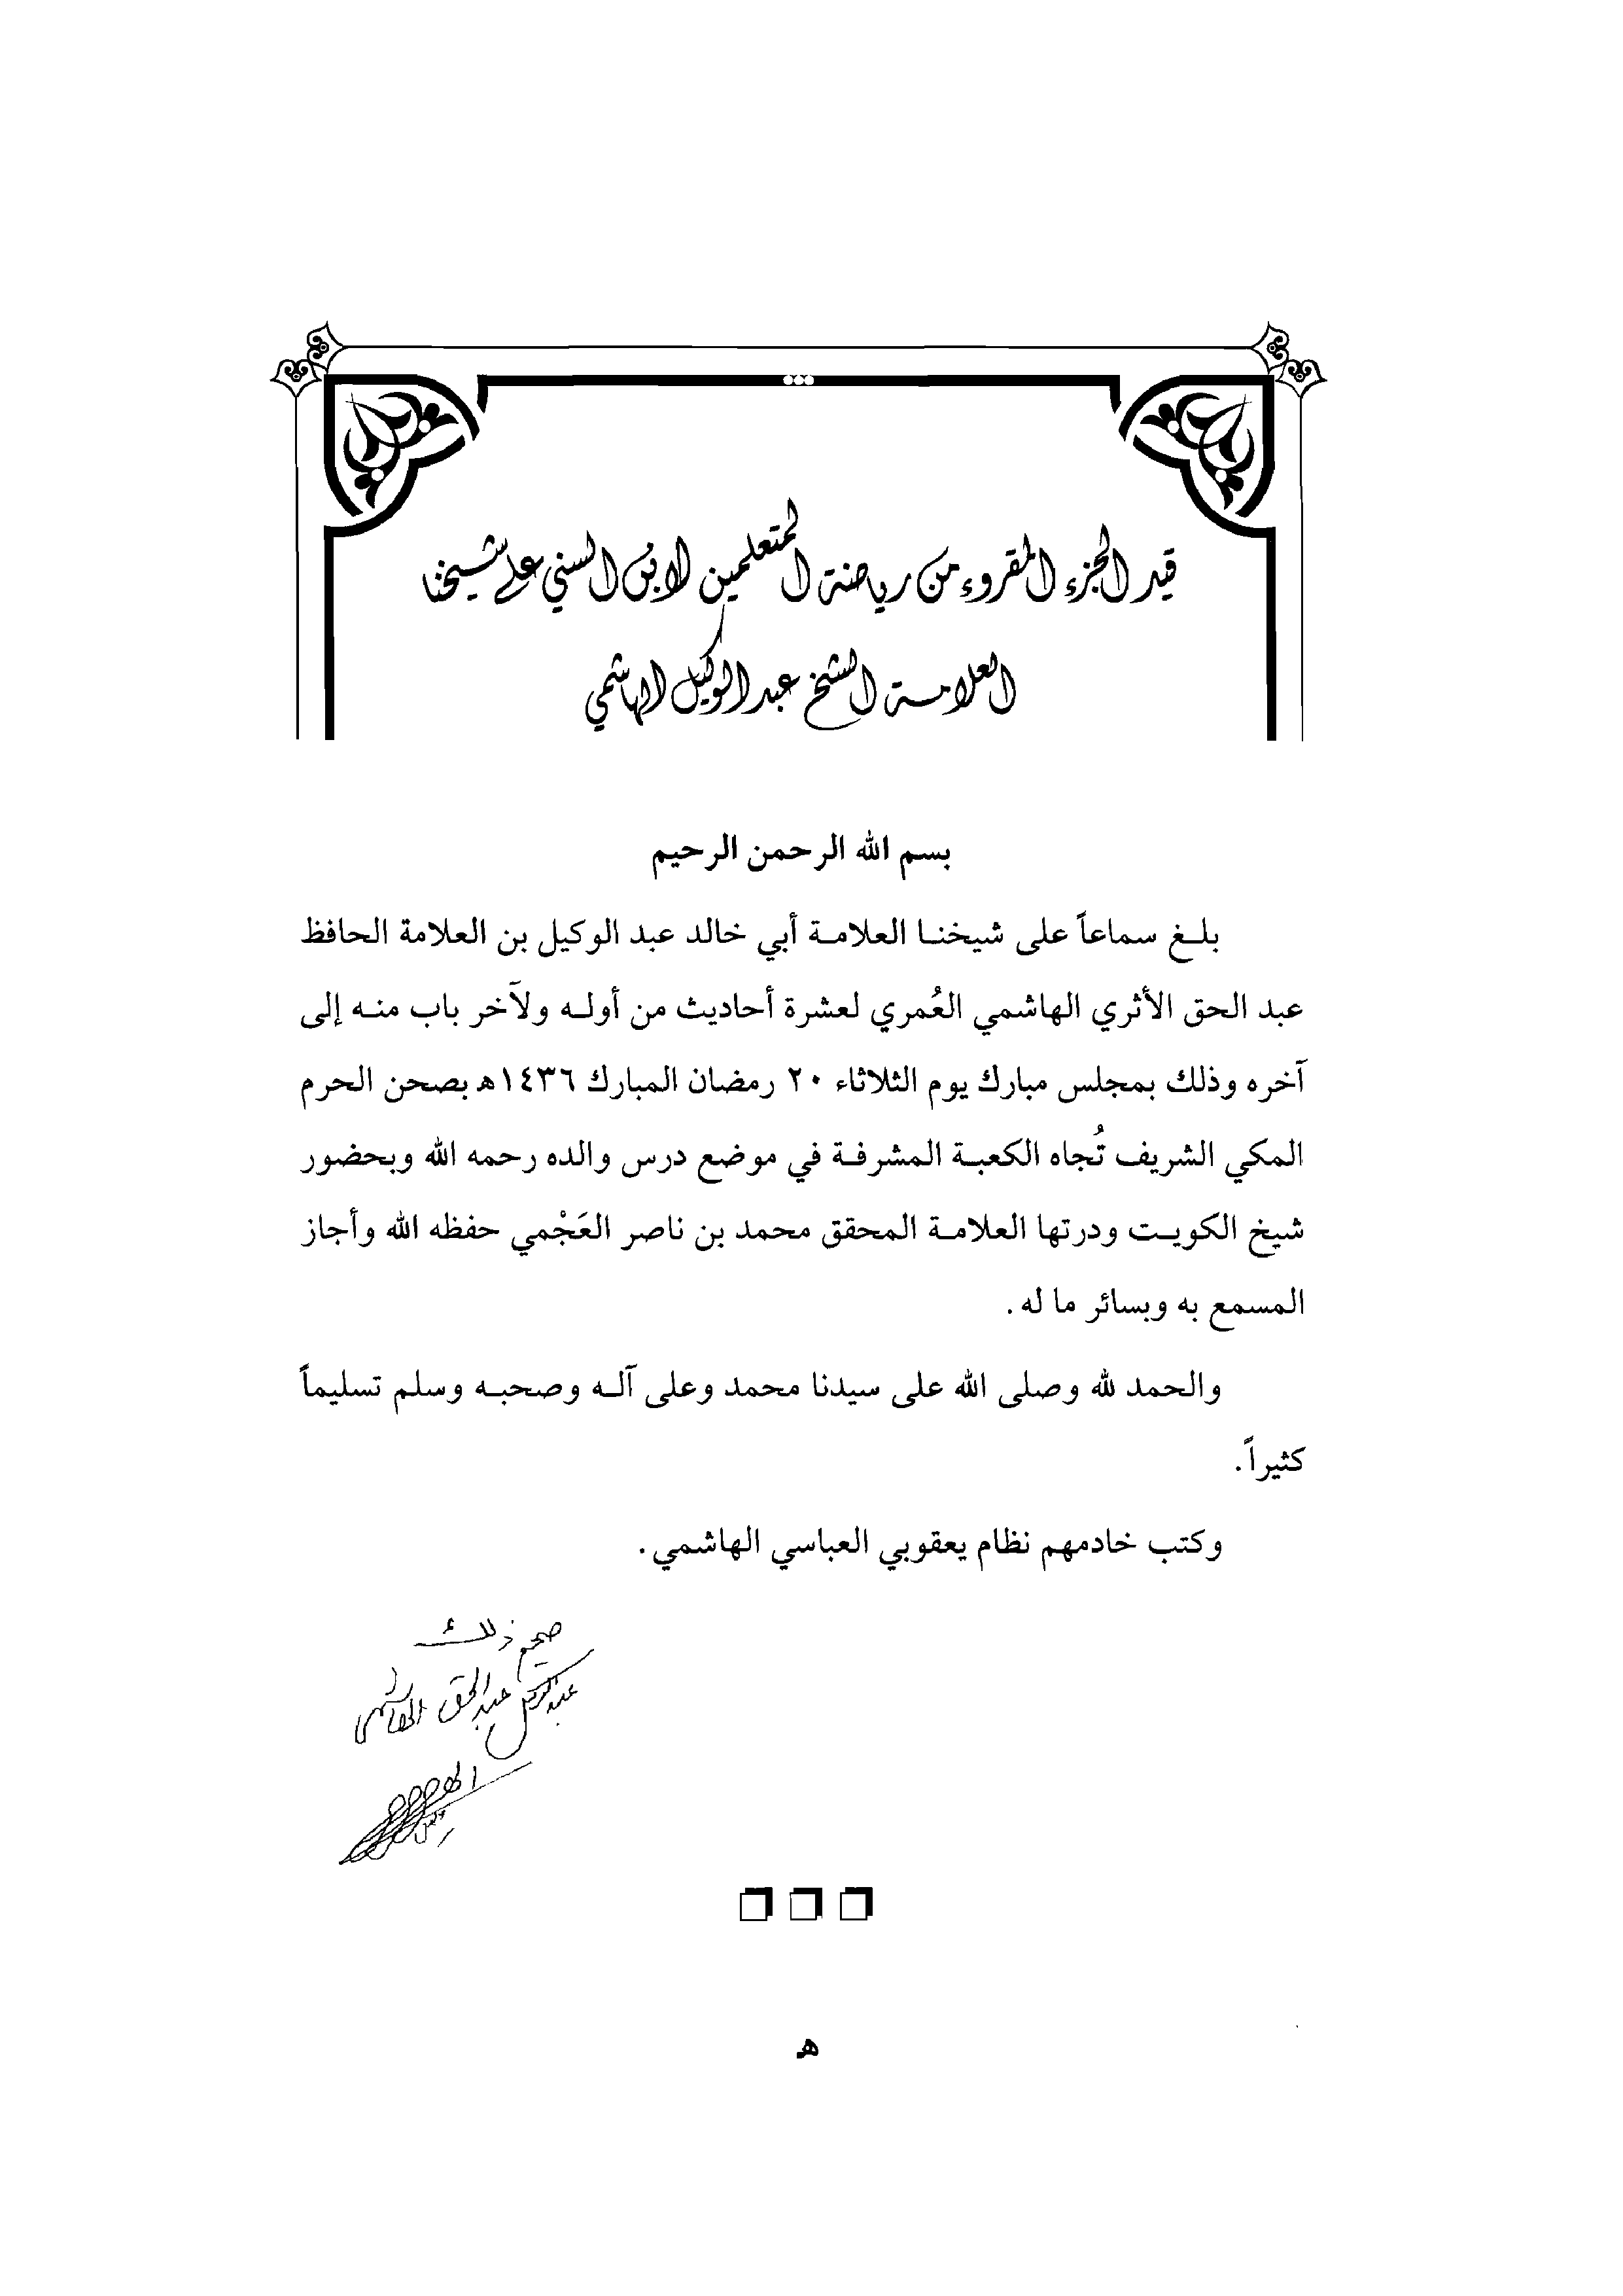 قيد الجزء المقروء من رياضة المتعلمين لابن السني على شيخنا
العلامة الشيخ عبد الوكيل الهاشمي
بسم الله الرحمن الرحيم
بلغ سماعاً على شيخنا العلامة أبي خالد عبد الوكيل بن العلامة الحافظ
عبد الحق الأثري الهاشمي العُمري لعشرة أحاديث من أوله ولآخر باب منه إلى
آخره وذلك بمجلس مبارك يوم الثلاثاء ٢٠ رمضان المبارك ١٤٣٦هـ بصحن الحرم
المكي الشريف تُجاه الكعبة المشرفة في موضع درس والده رحمه الله وبحضور
شيخ الكويت ودرتها العلامة المحقق محمد بن ناصر العَجْمي حفظه الله وأجاز
المسمع به وبسائر ما له.
والحمد لله وصلى الله على سيدنا محمد وعلى آله وصحبه وسلم تسليماً
كثيراً.
وكتب خادمهم نظام يعقوبي العباسي الهاشمي.
صحيح ذلك
عبد الوكيل عبد الحق الهاشمي
هـ